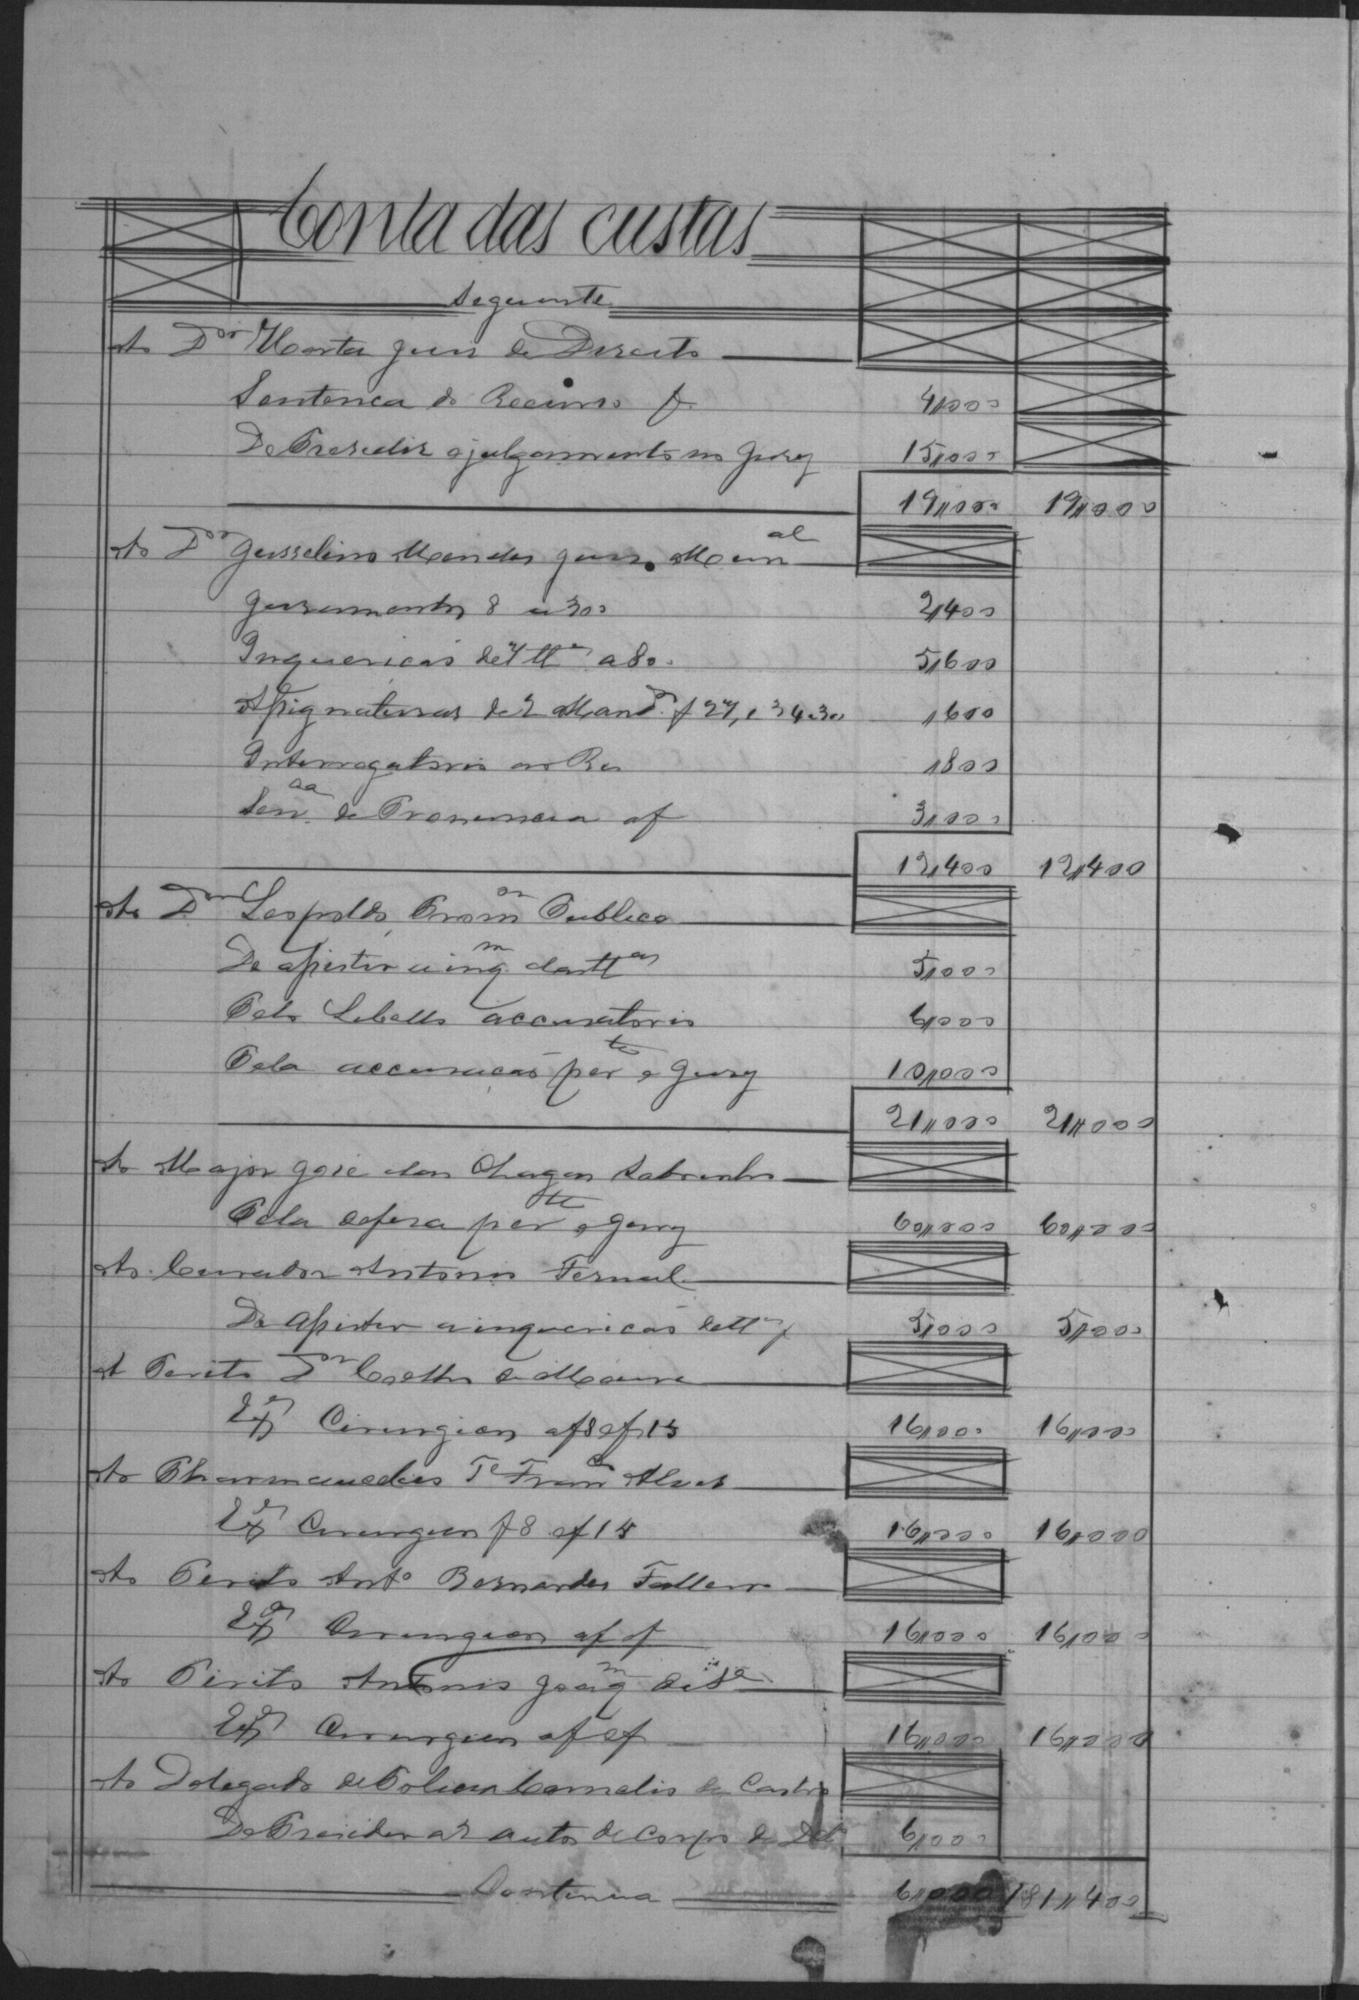 Conta das custas
Seguinte
Ao Dor Horta Juiz de Direito
Sentenca do Recurso f. 4,,000
De Presedir o julgamento no Jury 15,,000
19,,000 19,,000
Ao Dor Jusselino Mendes Juiz Munal
Juramentos 8 a 300 2,,400
Inquericão de 7 ttas a 80. 5,,600
Assignaturas de 2 Mandos f 27, e 34 a 300 ,,600
Interrogatorio ao Reo ,,800
Senca de Pronuncia af 3,,000
12,,400 12,,400
Ao Dor Leopoldo, Promor Publico
De assistir a inqm dasttas 5,,000
Pelo Libello accusatorio 6,,000
Pela accusacão perte o Jury 10,,000
21,,000 21,,000
Ao Major José das Chagas Sobrinho
Pela defesa perte o Jury 60,,000 60,,000
Ao Curador Antonio
De Assistir a inquericão dettas 5,,000 5,,000
A Perito Dor Coelho de Moura
Cirurgico af 8 ef 15 16,,000 16,,000
Ao Te Franco Alves
Cirurgico f 8 ef 15 16,,000 16,,000
Ao Perito Anto Bernardes
Cirurgico af ef 16,,000 16,,000
Ao Perito Antonio Joaqm de Sa
Cirurgico af ef 16,,000 16,,000
Ao Delegado de Policia Cornelio de Castro
De Presidir a 2 autos de Corpo de Delo 6,,000
Continua 6,,000 181,,400